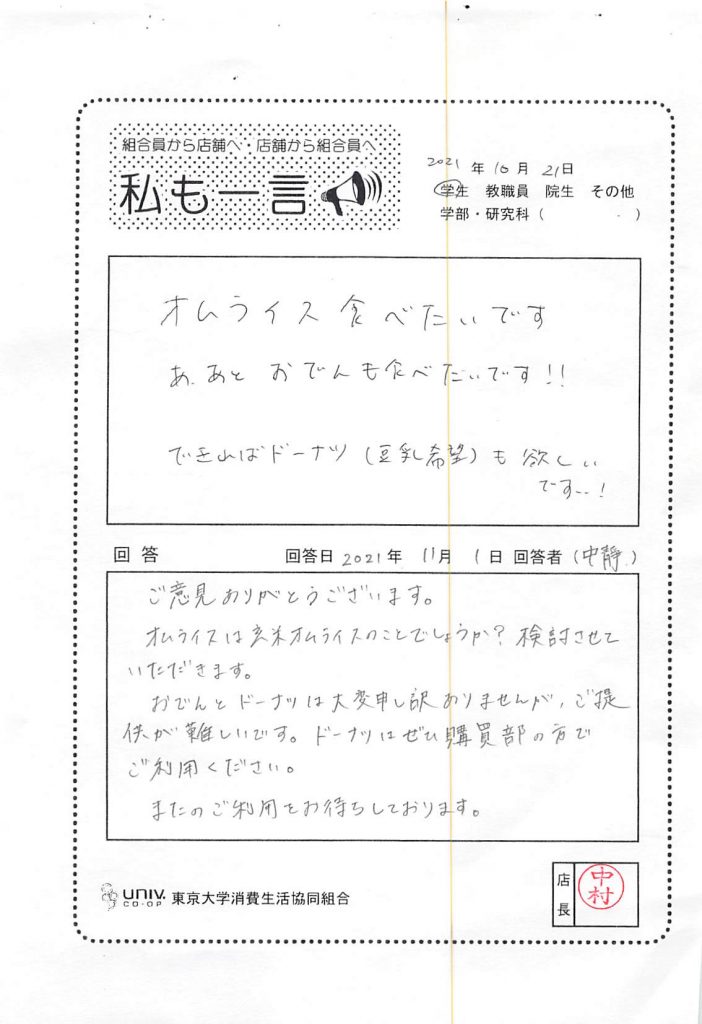 組合員から店舗へ・店舗から組合員へ
私も一言
2021年10月21日
学生 教職員 院生 その他
学部・研究科( )
オムライス食べたいです
あ、あと おでんも食べたいです!!
できればドーナツ(豆乳希望)も欲しい
です…!
回答 回答日2021年11月1日 回答者(中静)
ご意見ありがとうございます。
オムライスは玄米オムライスのことでしょうか?検討させて
いただきます。
おでんとドーナツは大変申し訳ありませんが、ご提
供が難しいです。ドーナツはぜひ購買部の方で
ご利用ください。
またのご利用をお待ちしております。
UNIV. CO-OP 東京大学消費生活協同組合
店長 中村